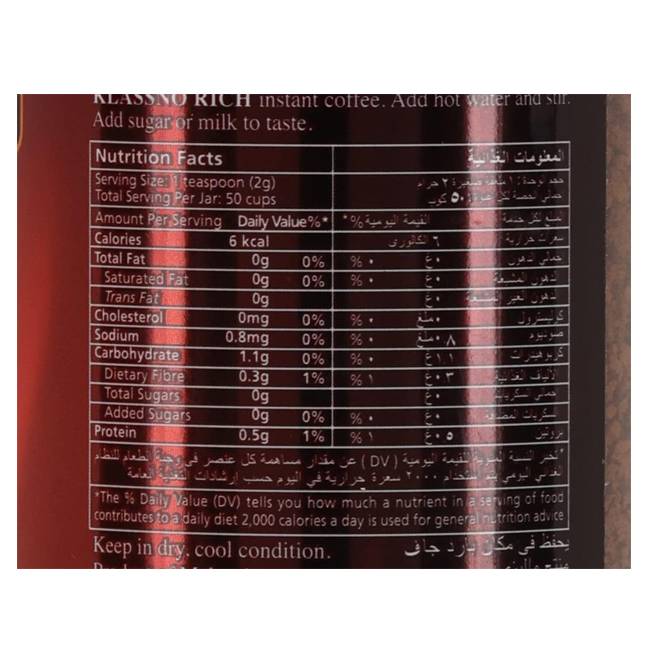 KLASSNO RICH instant coffee. Add hot water and stir.
Add sugar or milk to taste.
Nutrition Facts المعلومات الغذائية
Serving Size: 1 teaspoon (2g)
Total Serving Per Jar: 50 cups
Amount Per Serving Daily Value%* القيمة اليومية %*
Calories 6 kcal ٦ كالوري سعرات حرارية
Total Fat 0g 0% % ٠ ٠غ اجمالي الدهون
Saturated Fat 0g 0% % ٠ ٠غ الدهون المشبعة
Trans Fat 0g ٠غ
Cholesterol 0mg 0% % ٠ ٠ملغ كوليسترول
Sodium 0.8mg 0% % ٠ ٠.٨ملغ صوديوم
Carbohydrate 1.1g 0% % ٠ ١.١غ كربوهيدرات
Dietary Fibre 0.3g 1% % ١ ٠.٣غ الألياف الغذائية
Total Sugars 0g ٠غ
Added Sugars 0g 0% % ٠ ٠غ السكريات المضافة
Protein 0.5g 1% % ١ ٠.٥غ بروتين
النسبة المئوية للقيمة اليومية ( DV ) عن مقدار مساهمة كل عنصر في وجبة الطعام للنظام
الغذائي اليومي يتم استخدام ٢٠٠٠ سعرة حرارية في اليوم حسب إرشادات التغذية العامة
*The % Daily Value (DV) tells you how much a nutrient in a serving of food
contributes to a daily diet 2,000 calories a day is used for general nutrition advice
Keep in dry, cool condition. يحفظ في مكان بارد جاف